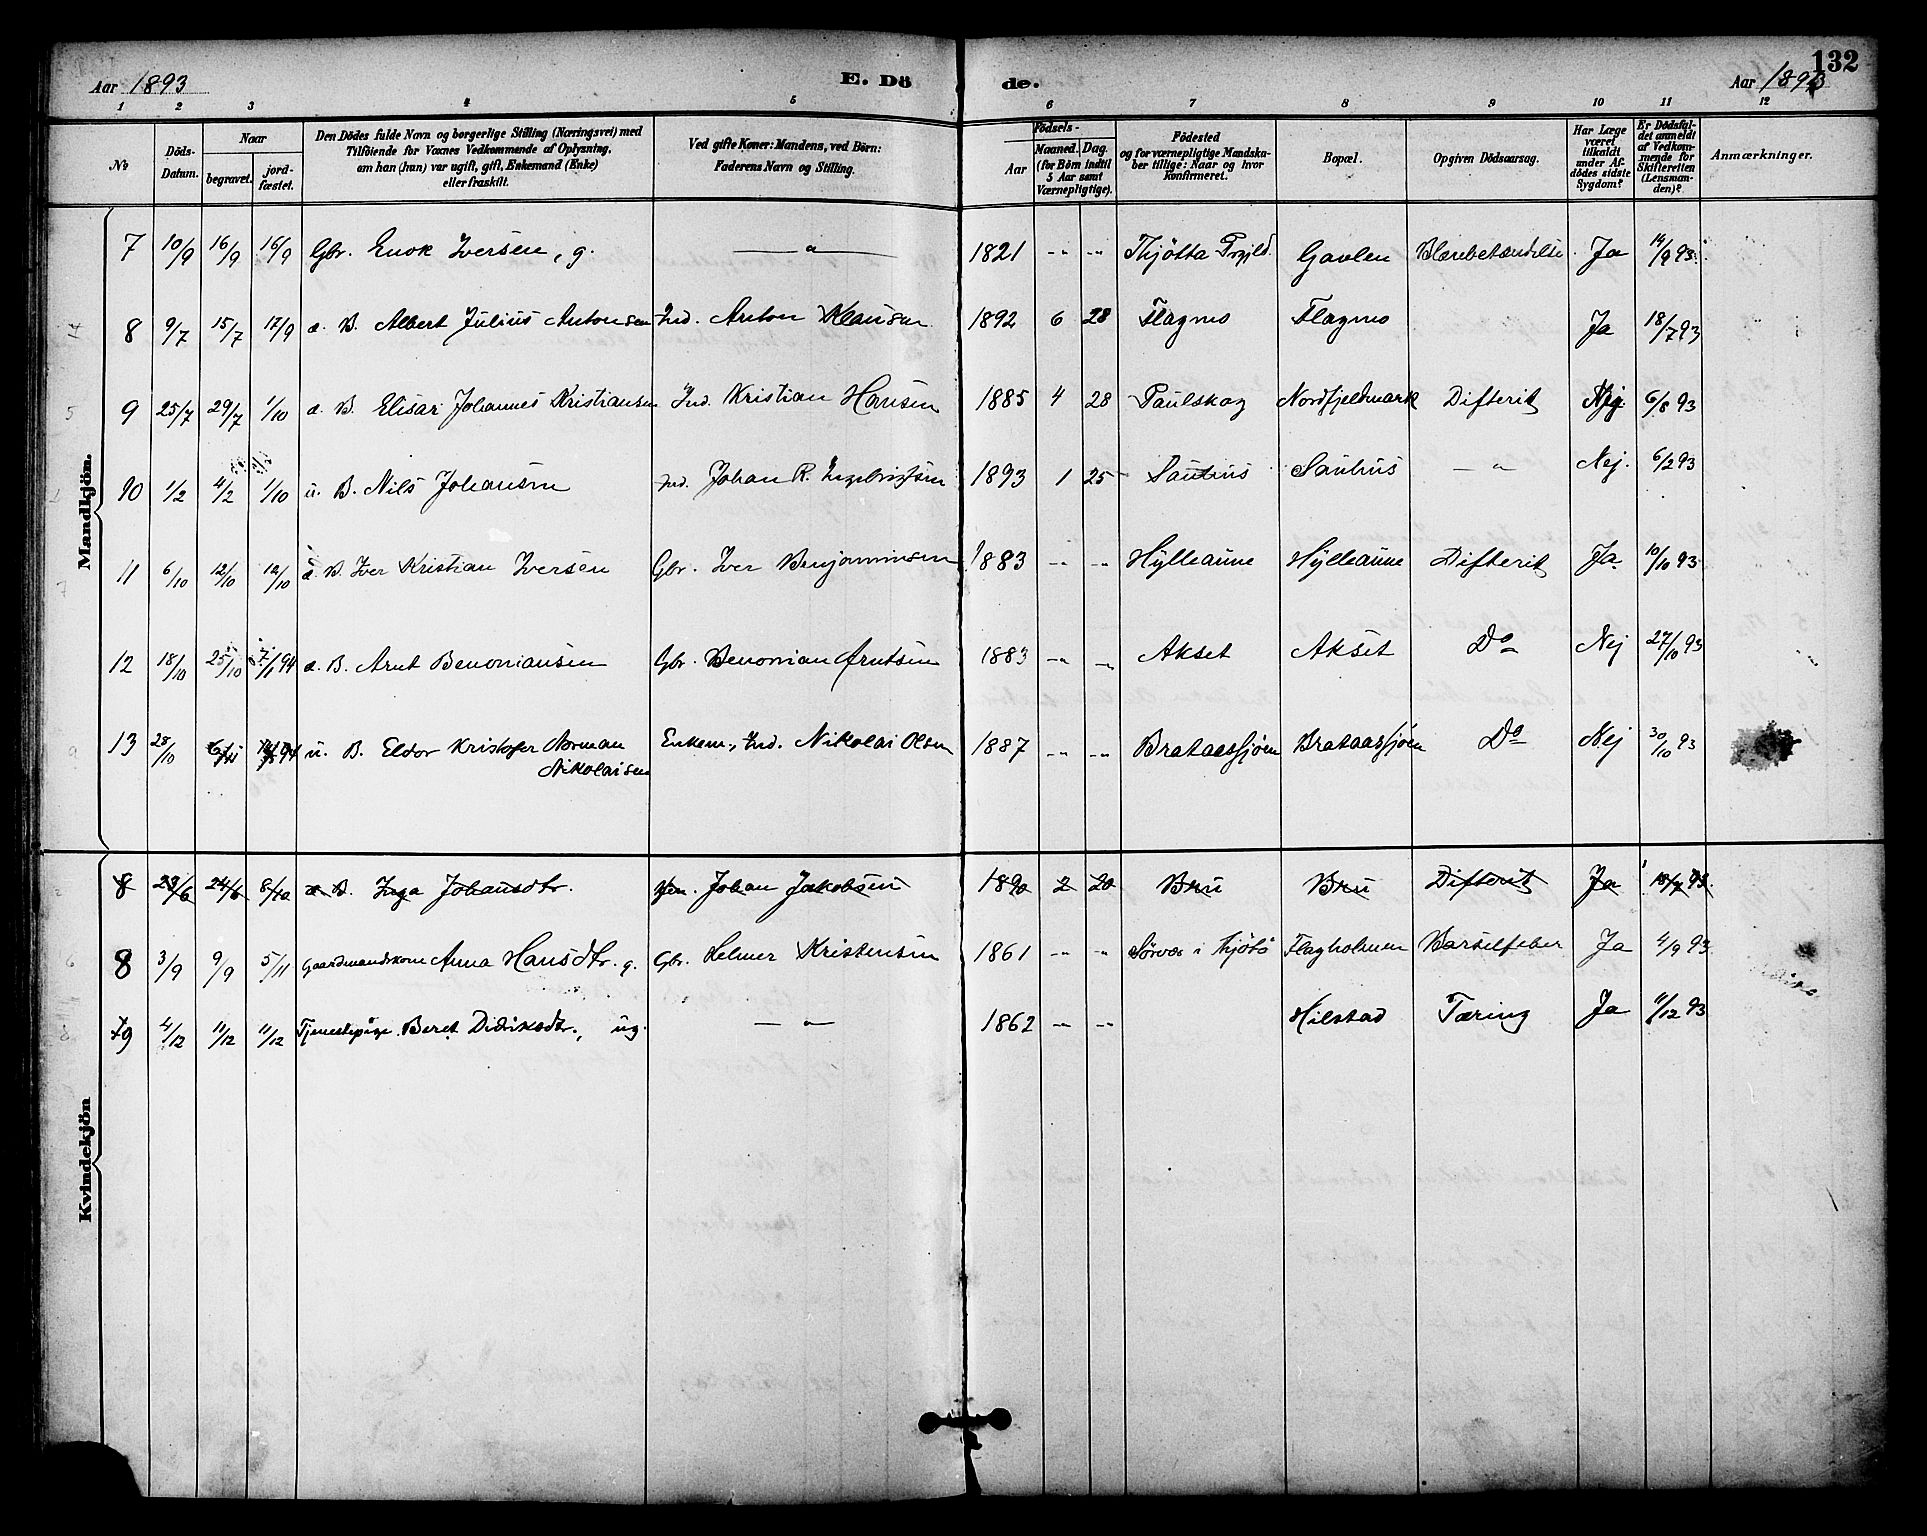 132
Aar 1893
E. Dö
de.
Aar 1893
1 2 3 4 5 6 7 8 9 10 11 12
No
Döds-
Datum.
Naar
begravet.
jord-
fæstet.
Den Dödes fulde Navn og borgerlige Stilling (Næringsvei) med
Tilföiende for Voxnes Vedkommende af Oplysning,
om han (hun) var ugift, gift, Enkemand (Enke)
eller fraskilt.
Ved gifte Koner: Mandens, ved Börn:
Faderens Navn og Stilling.
Födsels-
Aar
Maaned. Dag.
(for Börn indtil
5 Aar samt
Værnepligtige).
Födested
og for værnepligtige Mandska-
ber tillige: Naar og hvor
Konfirmeret.
Bopæl.
Opgiven Dödsaarsag.
Har Læge
været
tilkaldt
under Af-
dödes sidste
Sygdom?
Er Dödsfal-
det anmeldt
af Vedkom-
mende for
Skifteretten
(Lensman-
den)?
Anmærkninger.
Mandkjön.
7 10/9 16/9 16/9 Gbr. Enok Iversen, g. — " — 1821 -"- -"- Thjøtta Prgjld. Gavlen Blærebetændelse Ja 14/9 93.
8 9/7 15/7 17/9 æ. B. Albert Julius Antonsen Ind. Anton Klausen 1892 6 28 Flagmo Flagmo Ja 18/7 93
9 25/7 29/7 1/10 æ. B. Elisar Johannes Kristiansen Ind. Kristian Hansen 1885 4 28 Paulskog Nordfjeldmark Difterit Nej 6/8 93
10 1/2 4/2 1/10 u. B. Nils Johansen Ind. Johan R. Ingebrigtsen 1893 1 25 Sauhus Sauhus — " Nej. 6/2 93
11 6/10 12/10 12/10 æ. B. Iver Kristian Iversen Gbr. Iver Benjaminsen 1883 -"- -"- Hylleaune Hylleaune Difterit Ja. 10/10 93
12 18/10 25/10 7/1 94 æ. B. Arnt Benoniansen Gbr. Benonian Arntsen 1883 -"- -"- Akset Akset Do Nej 27/10 93
13 28/10 6/11 94 u. B. Eldor Kristofer Norman
Nikolaisen Enkem., Ind. Nikolai Olsen 1887 -"- -"- Brataasjøen Brataasjøen Do Nej 30/10 93
Kvindekjön
8 23/6 24/6 8/10 æ B. Inga Johansdtr. Johan Jakobsen 1890 2 20 Bru Bru Difterit Ja 93.
8 3/9 9/9 5/11 Gaardmandskone Anna Hansdtr. g. Gbr. Helmer Kristensen 1861 -"- -"- Sørvær i Flagholmen Barselfeber Ja 4/9 93
9 4/12 11/12 11/12 Tjenestepige Beret Didriksdtr., ug. — " — 1862 -"- -"- Hilstad Tæring Ja 11/12 93